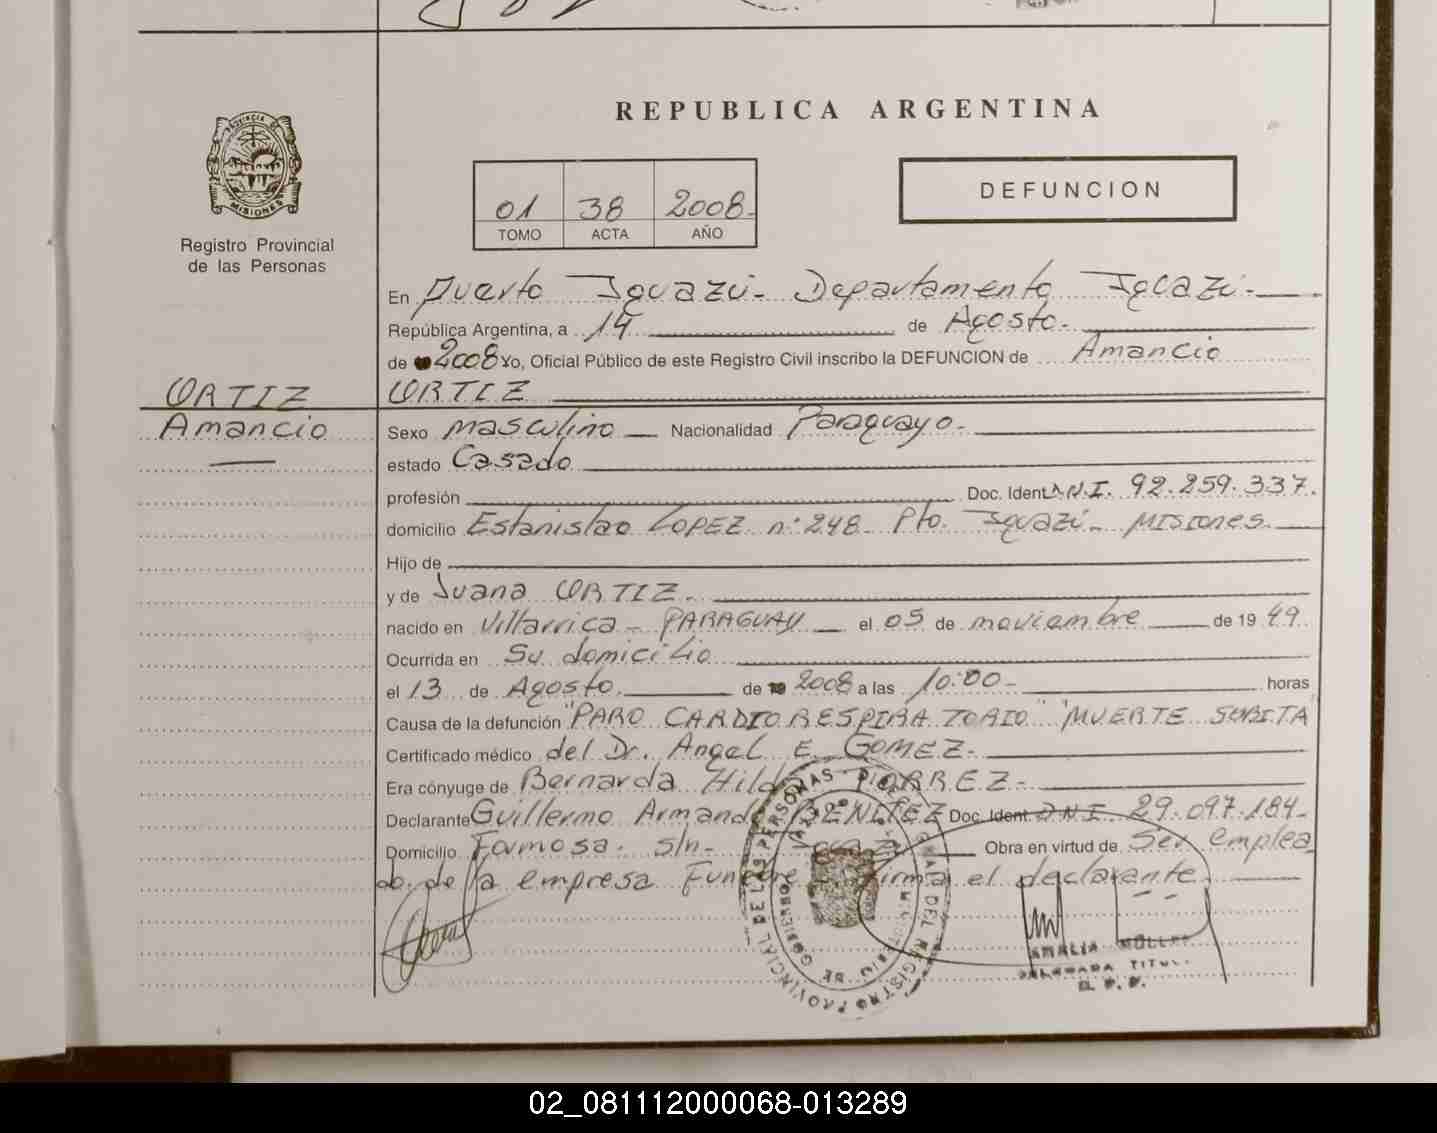 REPUBLICA ARGENTINA
PROVINCIA DE
MISIONES
Registro Provincial
de las Personas
01 38 2008
TOMO ACTA AÑO
DEFUNCION
En Puerto Iguazú - Departamento Iguazú -
República Argentina, a 14 de Agosto -
de 2008 Yo, Oficial Público de este Registro Civil inscribo la DEFUNCION de Amancio
ORTIZ
ORTIZ
Amancio
Sexo masculino Nacionalidad Paraguayo -
estado Casado
profesión Doc. Ident D.N.I. 92.259.337.
domicilio Estanislao LOPEZ n: 248 Pto. Iguazú - MISIONES
Hijo de
y de Juana ORTIZ -
nacido en Villarrica - PARAGUAY el 05 de noviembre de 19 49
Ocurrida en Su domicilio
el 13 de Agosto de 2008 a las 10:00 - horas
Causa de la defunción "PARO CARDIORESPIRATORIO" "MUERTE SUBITA"
Certificado médico del Dr. Angel E. GOMEZ -
Era cónyuge de Bernarda Hilda
Declarante Guillermo Armando BENITEZ Doc. Ident. D.N.I. 29.097.184 -
Domicilio Formosa - s/n - Obra en virtud de Ser emplea
do de la empresa Funebre firma el declarante
PROVINCIAL DE LAS PERSONAS
DEL REGISTRO
MINISTERIO DE GOBIERNO
AMALIA MÜLLER
DELEGADA TITUL.
R. P. P.
02_081112000068-013289